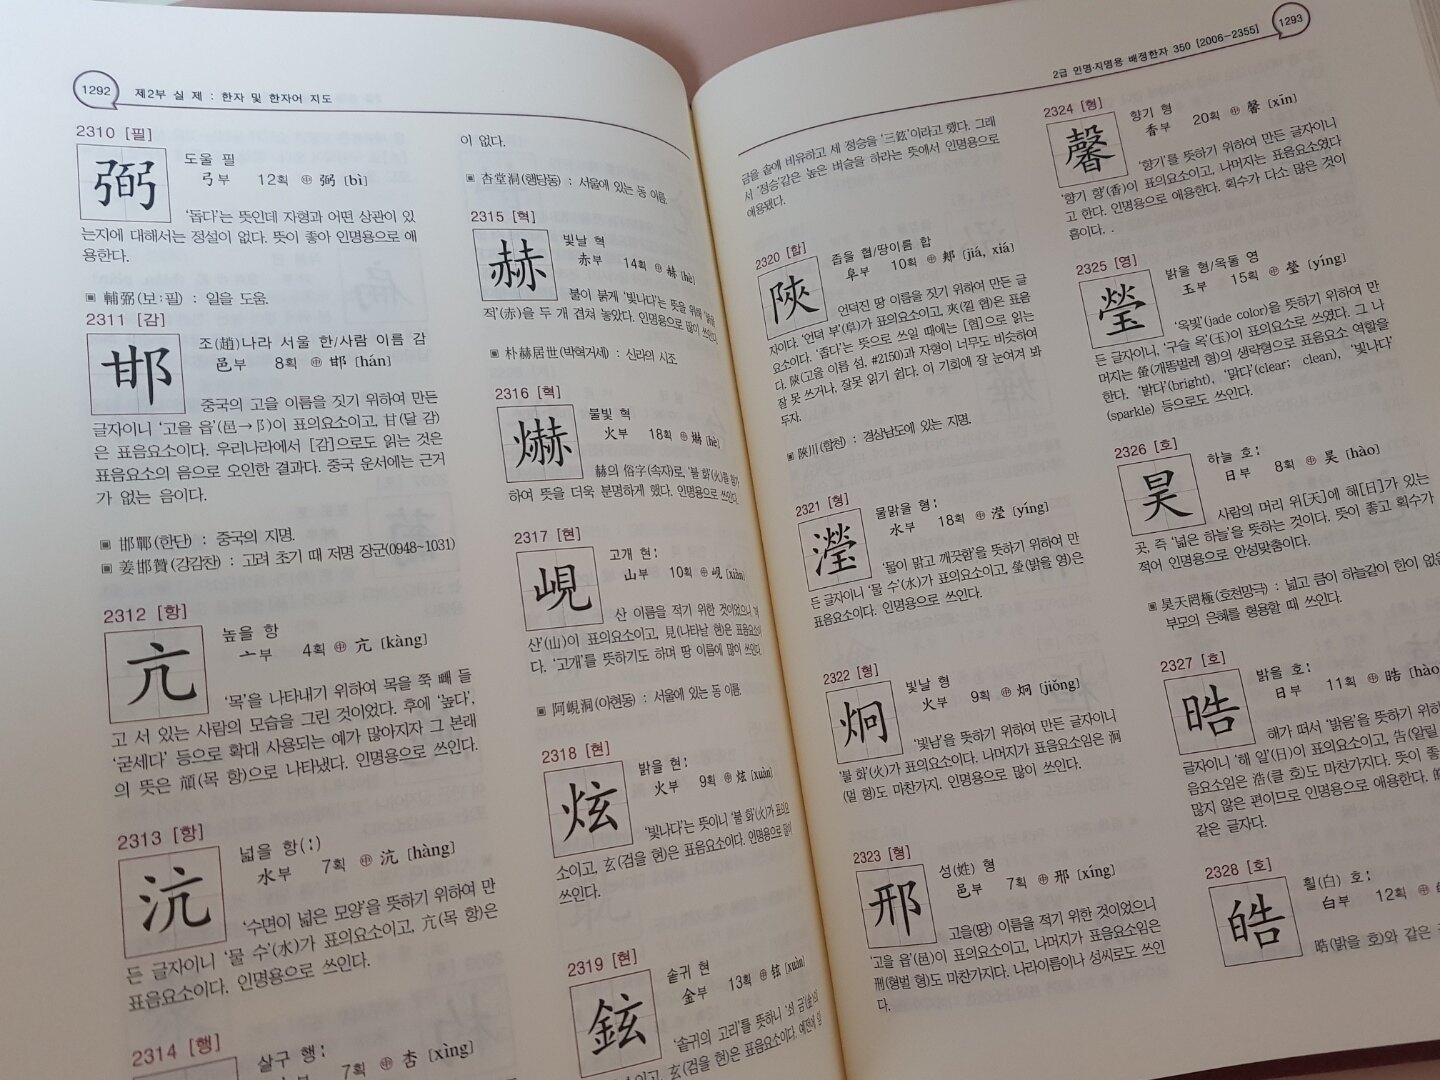 1292 제2부 실 제 : 한자 및 한자어 지도
2310 [필]
弼
도울 필
弓부 12획 ㊥ 弼 [bì]
'돕다'는 뜻인데 자형과 어떤 상관이 있
는지에 대해서는 정설이 없다. 뜻이 좋아 인명용으로 애
용한다.
▣ 輔弼(보:필) : 일을 도움.
2311 [감]
邯
조(趙)나라 서울 한/사람 이름 감
邑부 8획 ㊥ 邯 [hán]
중국의 고을 이름을 짓기 위하여 만든
글자이니 '고을 읍'(邑→阝)이 표의요소이고, 甘(달 감)
은 표음요소이다. 우리나라에서 [감]으로도 읽는 것은
표음요소의 음으로 오인한 결과다. 중국 운서에는 근거
가 없는 음이다.
▣ 邯鄲(한단) : 중국의 지명.
▣ 姜邯贊(강감찬) : 고려 초기 때 저명 장군(0948~1031)
2312 [항]
亢
높을 항
亠부 4획 ㊥ 亢 [kàng]
'목'을 나타내기 위하여 목을 쭉 빼 들
고 서 있는 사람의 모습을 그린 것이었다. 후에 '높다',
'굳세다' 등으로 확대 사용되는 예가 많아지자 그 본래
의 뜻은 頏(목 항)으로 나타냈다. 인명용으로 쓰인다.
2313 [항]
沆
넓을 항(:)
水부 7획 ㊥ 沆 [hàng]
'수면이 넓은 모양'을 뜻하기 위하여 만
든 글자이니 '물 수'(水)가 표의요소이고, 亢(목 항)은
표음요소이다. 인명용으로 쓰인다.
2314 [행]
살구 행:
7획 ㊥ 杏 [xìng]
이 없다.
▣ 杏堂洞(행당동) : 서울에 있는 동 이름.
2315 [혁]
赫
빛날 혁
赤부 14획 ㊥ 赫 [hè]
불이 붉게 '빛나다'는 뜻을 위해
적'(赤)을 두 개 겹쳐 놓았다. 인명용으로 많이 쓰인다.
▣ 朴赫居世(박혁거세) : 신라의 시조.
2316 [혁]
爀
불빛 혁
火부 18획 ㊥ 爀 [hè]
赫의 俗字(속자)로, '불 화'(火)를 첨가
하여 뜻을 더욱 분명하게 했다. 인명용으로 쓰인다.
2317 [현]
峴
고개 현:
山부 10획 ㊥ 岘 [xiàn]
산 이름을 적기 위한 것이었으니
산'(山)이 표의요소이고, 見(나타날 현)은 표음요소이
다. '고개'를 뜻하기도 하며 땅 이름에 많이 쓰인다.
▣ 阿峴洞(아현동) : 서울에 있는 동 이름.
2318 [현]
炫
밝을 현:
火부 9획 ㊥ 炫 [xuàn]
'빛나다'는 뜻이니 '불 화'(火)가 표의요
소이고, 玄(검을 현)은 표음요소이다. 인명용으로 많이
쓰인다.
2319 [현]
鉉
솥귀 현
金부 13획 ㊥ 铉 [xuàn]
'솥귀의 고리'를 뜻하니 '쇠 금'(金)이
표의요소이고, 玄(검을 현)은 표음요소이다. 예전에
2급 인명·지명용 배정한자 350 [2006-2355] 1293
금을 솥에 비유하고 세 정승을 '三鉉'이라고 했다. 그래
서 '정승'같은 높은 벼슬을 하라는 뜻에서 인명용으로
애용됐다.
2320 [합]
陜
좁을 협/땅이름 합
阜부 10획 ㊥ 郏 [jiá, xiá]
언덕진 땅 이름을 짓기 위하여 만든 글
자이다. '언덕 부'(阜)가 표의요소이고, 夾(낄 협)은 표음
요소이다. '좁다'는 뜻으로 쓰일 때에는 [협]으로 읽는
다. 陝(고을 이름 섬, #2150)과 자형이 너무도 비슷하여
잘 못 쓰거나, 잘못 읽기 쉽다. 이 기회에 잘 눈여겨 봐
두자.
▣ 陜川(합천) : 경상남도에 있는 지명.
2321 [형]
瀅
물맑을 형:
水부 18획 ㊥ 滢 [yíng]
'물이 맑고 깨끗함'을 뜻하기 위하여 만
든 글자이니 '물 수'(水)가 표의요소이고, 瑩(밝을 영)은
표음요소이다. 인명용으로 쓰인다.
2322 [형]
炯
빛날 형
火부 9획 ㊥ 炯 [jiǒng]
'빛남'을 뜻하기 위하여 만든 글자이니
'불 화'(火)가 표의요소이다. 나머지가 표음요소임은 泂
(멀 형)도 마찬가지. 인명용으로 많이 쓰인다.
2323 [형]
邢
성(姓) 형
邑부 7획 ㊥ 邢 [xíng]
고을(땅) 이름을 적기 위한 것이었으니
'고을 읍'(邑)이 표의요소이고, 나머지가 표음요소임은
刑(형벌 형)도 마찬가지다. 나라이름이나 성씨로도 쓰인
다.
2324 [형]
馨
향기 형
香부 20획 ㊥ 馨 [xīn]
'향기'를 뜻하기 위하여 만든 글자이니
'향기 향'(香)이 표의요소이고, 나머지는 표음요소였다
고 한다. 인명용으로 애용한다. 획수가 다소 많은 것이
흠이다. .
2325 [영]
瑩
밝을 형/옥돌 영
玉부 15획 ㊥ 莹 [yíng]
'옥빛'(jade color)을 뜻하기 위하여 만
든 글자이니, '구슬 옥'(玉)이 표의요소로 쓰였다. 그 나
머지는 螢(개똥벌레 형)의 생략형으로 표음요소 역할을
한다. '밝다'(bright), '맑다'(clear; clean), '빛나다'
(sparkle) 등으로도 쓰인다.
2326 [호]
昊
하늘 호:
日부 8획 ㊥ 昊 [hào]
사람의 머리 위[天]에 해[日]가 있는
곳, 즉 '넓은 하늘'을 뜻하는 것이다. 뜻이 좋고 획수가
적어 인명용으로 안성맞춤이다.
▣ 昊天罔極(호천망극) : 넓고 큼이 하늘같이 한이 없음
부모의 은혜를 형용할 때 쓰인다.
2327 [호]
晧
밝을 호:
日부 11획 ㊥ 晧 [hào
해가 떠서 '밝음'을 뜻하기 위하
글자이니 '해 일'(日)이 표의요소이고, 告(알릴
음요소임은 浩(클 호)도 마찬가지다. 뜻이 좋
많지 않은 편이므로 인명용으로 애용한다.
같은 글자다.
2328 [호]
皓
흴(白) 호:
白부 12획 ㊥
晧(밝을 호)와 같은